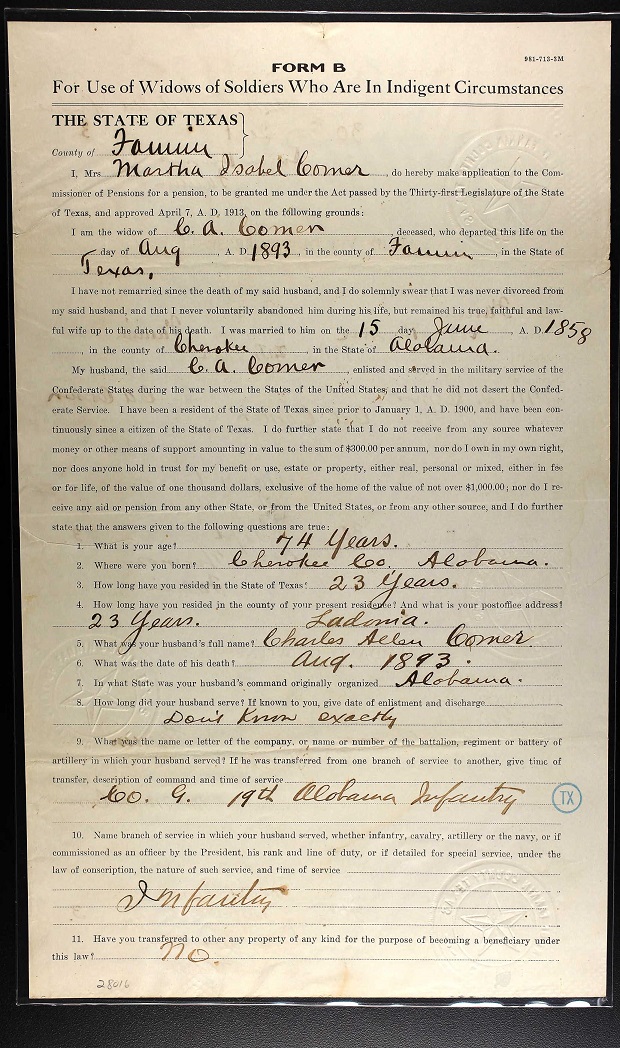 981-713-3M
FORM B
For Use of Widows of Soldiers Who Are In Indigent Circumstances
THE STATE OF TEXAS
County of Fannin
I, Mrs. Martha Isabel Comer, do hereby make application to the Com-
missioner of Pensions for a pension, to be granted me under the Act passed by the Thirty-first Legislature of the State
of Texas, and approved April 7, A. D. 1913, on the following grounds:
I am the widow of C. A. Comer, deceased, who departed this life on the
day of Aug, A. D. 1893, in the county of Fannin, in the State of
Texas.
I have not remarried since the death of my said husband, and I do solemnly swear that I was never divorced from
my said husband, and that I never voluntarily abandoned him during his life, but remained his true, faithful and law-
ful wife up to the date of his death. I was married to him on the 15 day June, A. D. 1858
, in the county of Cherokee, in the State of Alabama.
My husband, the said C. A. Comer, enlisted and served in the military service of the
Confederate States during the war between the States of the United States, and that he did not desert the Confed-
erate Service. I have been a resident of the State of Texas since prior to January 1, A. D. 1900, and have been con-
tinuously since a citizen of the State of Texas. I do further state that I do not receive from any source whatever
money or other means of support amounting in value to the sum of $300.00 per annum, nor do I own in my own right,
nor does anyone hold in trust for my benefit or use, estate or property, either real, personal or mixed, either in fee
or for life, of the value of one thousand dollars, exclusive of the home of the value of not over $1,000.00; nor do I re-
ceive any aid or pension from any other State, or from the United States, or from any other source, and I do further
state that the answers given to the following questions are true:
1. What is your age? 74 Years.
2. Where were you born? Cherokee Co, Alabama.
3. How long have you resided in the State of Texas? 23 Years.
4. How long have you resided in the county of your present residence? And what is your postoffice address?
23 Years. Ladonia.
5. What was your husband's full name? Charles Allen Comer.
6. What was the date of his death? Aug. 1893.
7. In what State was your husband's command originally organized Alabama.
8. How long did your husband serve? If known to you, give date of enlistment and discharge
Dont Know exactly
9. What was the name or letter of the company, or name or number of the battalion, regiment or battery of
artillery in which your husband served? If he was transferred from one branch of service to another, give time of
transfer, description of command and time of service
Co. G. 19th Alabama Infantry
TX
10. Name branch of service in which your husband served, whether infantry, cavalry, artillery or the navy, or if
commissioned as an officer by the President, his rank and line of duty, or if detailed for special service, under the
law of conscription, the nature of such service, and time of service
Infantry
11. Have you transferred to other any property of any kind for the purpose of becoming a beneficiary under
this law? No.
28016